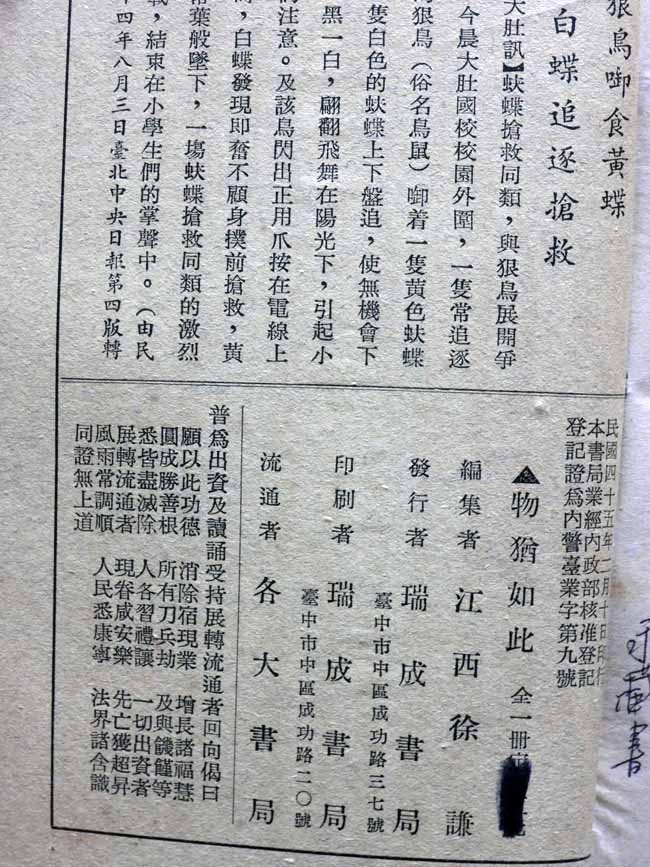 狠鳥啣食黃蝶
白蝶追逐搶救
大肚訊】蚨蝶搶救同類，與狠鳥展開爭
今晨大肚國校校園外圍，一隻常追逐
狠鳥（俗名鳥鼠）啣着一隻黃色蚨蝶
隻白色的蚨蝶上下盤追，使無機會下
黑一白，翩翻飛舞在陽光下，引起小
注意。及該鳥閃出正用爪按在電線上
，白蝶發現即奮不顧身撲前搶救，黃
葉般墜下，一場蚨蝶搶救同類的激烈
，結束在小學生們的掌聲中。（由民
四年八月三日臺北中央日報第四版轉
民國四十五年二月十日印行
本書局業經內政部核准登記
登記證為內警臺業字第九號
▲物猶如此 全一冊
編集者 江西徐謙
發行者 瑞成書局
臺中市中區成功路三七號
印刷者 瑞成書局
臺中市中區成功路二〇號
流通者 各大書局
普為出資及讀誦受持展轉流通者回向偈曰
願以此功德 消除宿現業 增長諸福慧
圓成勝善根 所有刀兵劫 及與饑饉等
悉皆盡滅除 人各習禮讓 一切出資者
展轉流通者 現眷咸安樂 先亡獲超昇
風雨常調順 人民悉康寧 法界諸含識
同證無上道
書